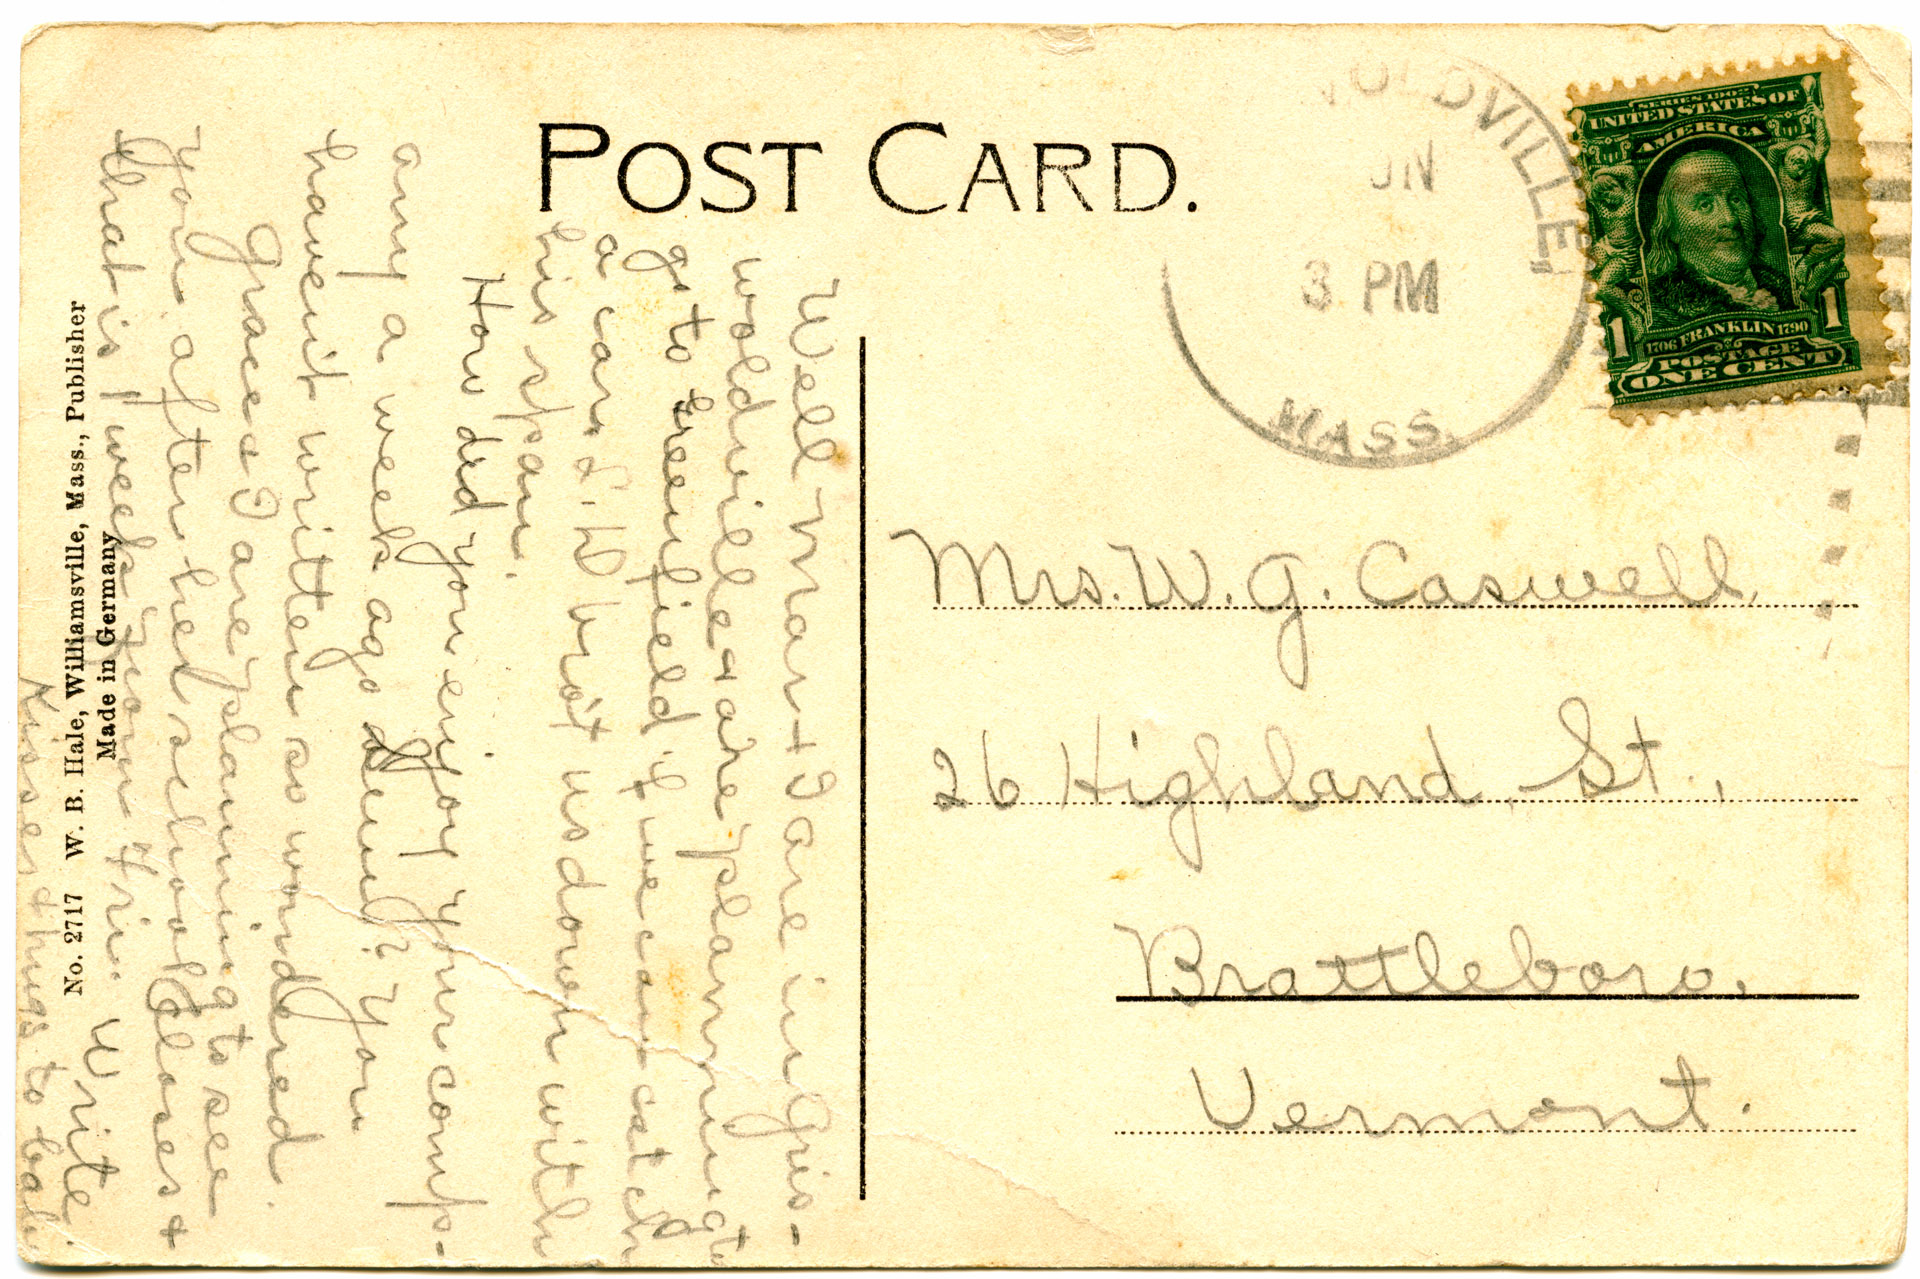 POST CARD.
OLDVILLE,
UN
3 PM
MASS.
SERIES 1902
UNITED STATES OF
AMERICA
1706 FRANKLIN 1790
1 1
POSTAGE
ONE CENT
Well Mart & I are in Gris-
woldville & are planning to
go to Greenfield if we can catch
a car. L. H. bro't us down with
his span.
How did you enjoy your comp-
any a week ago Sun? You
havent written so wondered.
Grace & I are planning to see
you after her school closes &
that is 1 week from Fri. Write
Kisses & hugs to
Mrs. W. G. Caswell,
26 Highland St.,
Brattleboro,
Vermont.
No. 2717 W. B. Hale, Williamsville, Mass., Publisher
Made in Germany